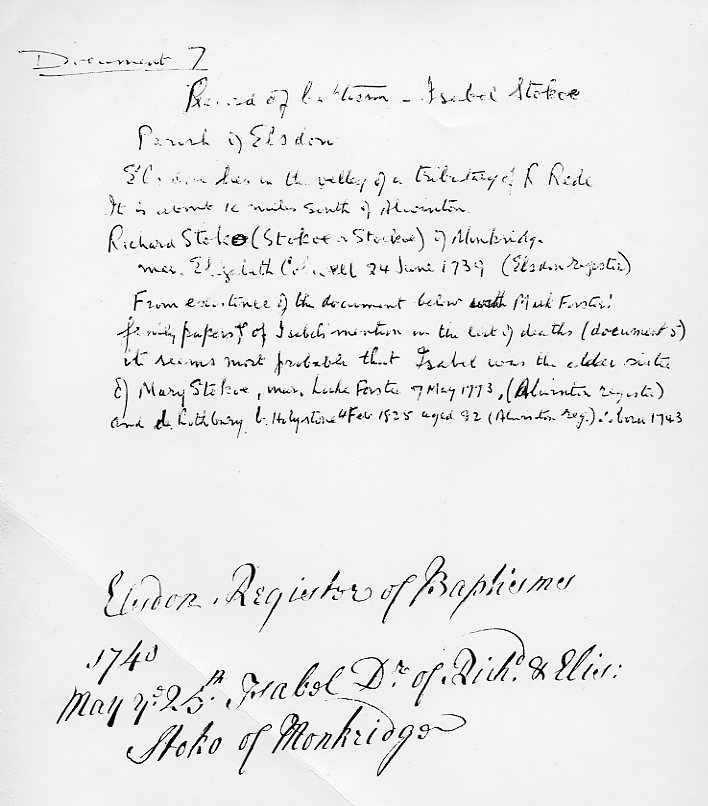 Document 7
Record of baptism - Isabel Stokoe
Parish of Elsdon
Elsdon lies in the valley of a tributary of R Rede
It is about 12 miles South of Alwinton.
Richard Stokoe (Stokoe or Stockoe) of Monkridge
mar. Elizabeth 24 June 1739 (Elsdon register)
From existence of the document below with Forster
family papers & of Isabel's mention in the list of deaths (document 5)
it seems most probable that Isabel was the elder sister
of Mary Stokoe, mar. Luke Forster 7 May 1773, (Alwinton register)
and d. Rothbury b. Holystone 4 Feb. 1825 aged 82 (Alwinton Reg.) ∴ born 1743
Elsdon Register of Baptisms
1740
May ye 25th. Isabel Dr. of Richd. & Eliz:
Stoko of Monkridge